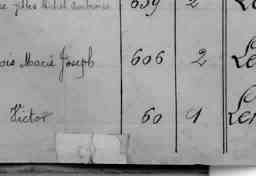 gilles Michel Ambroise 659 2 Le
ois Marie Joseph 606 2 Le
Victor 60 1 Ler